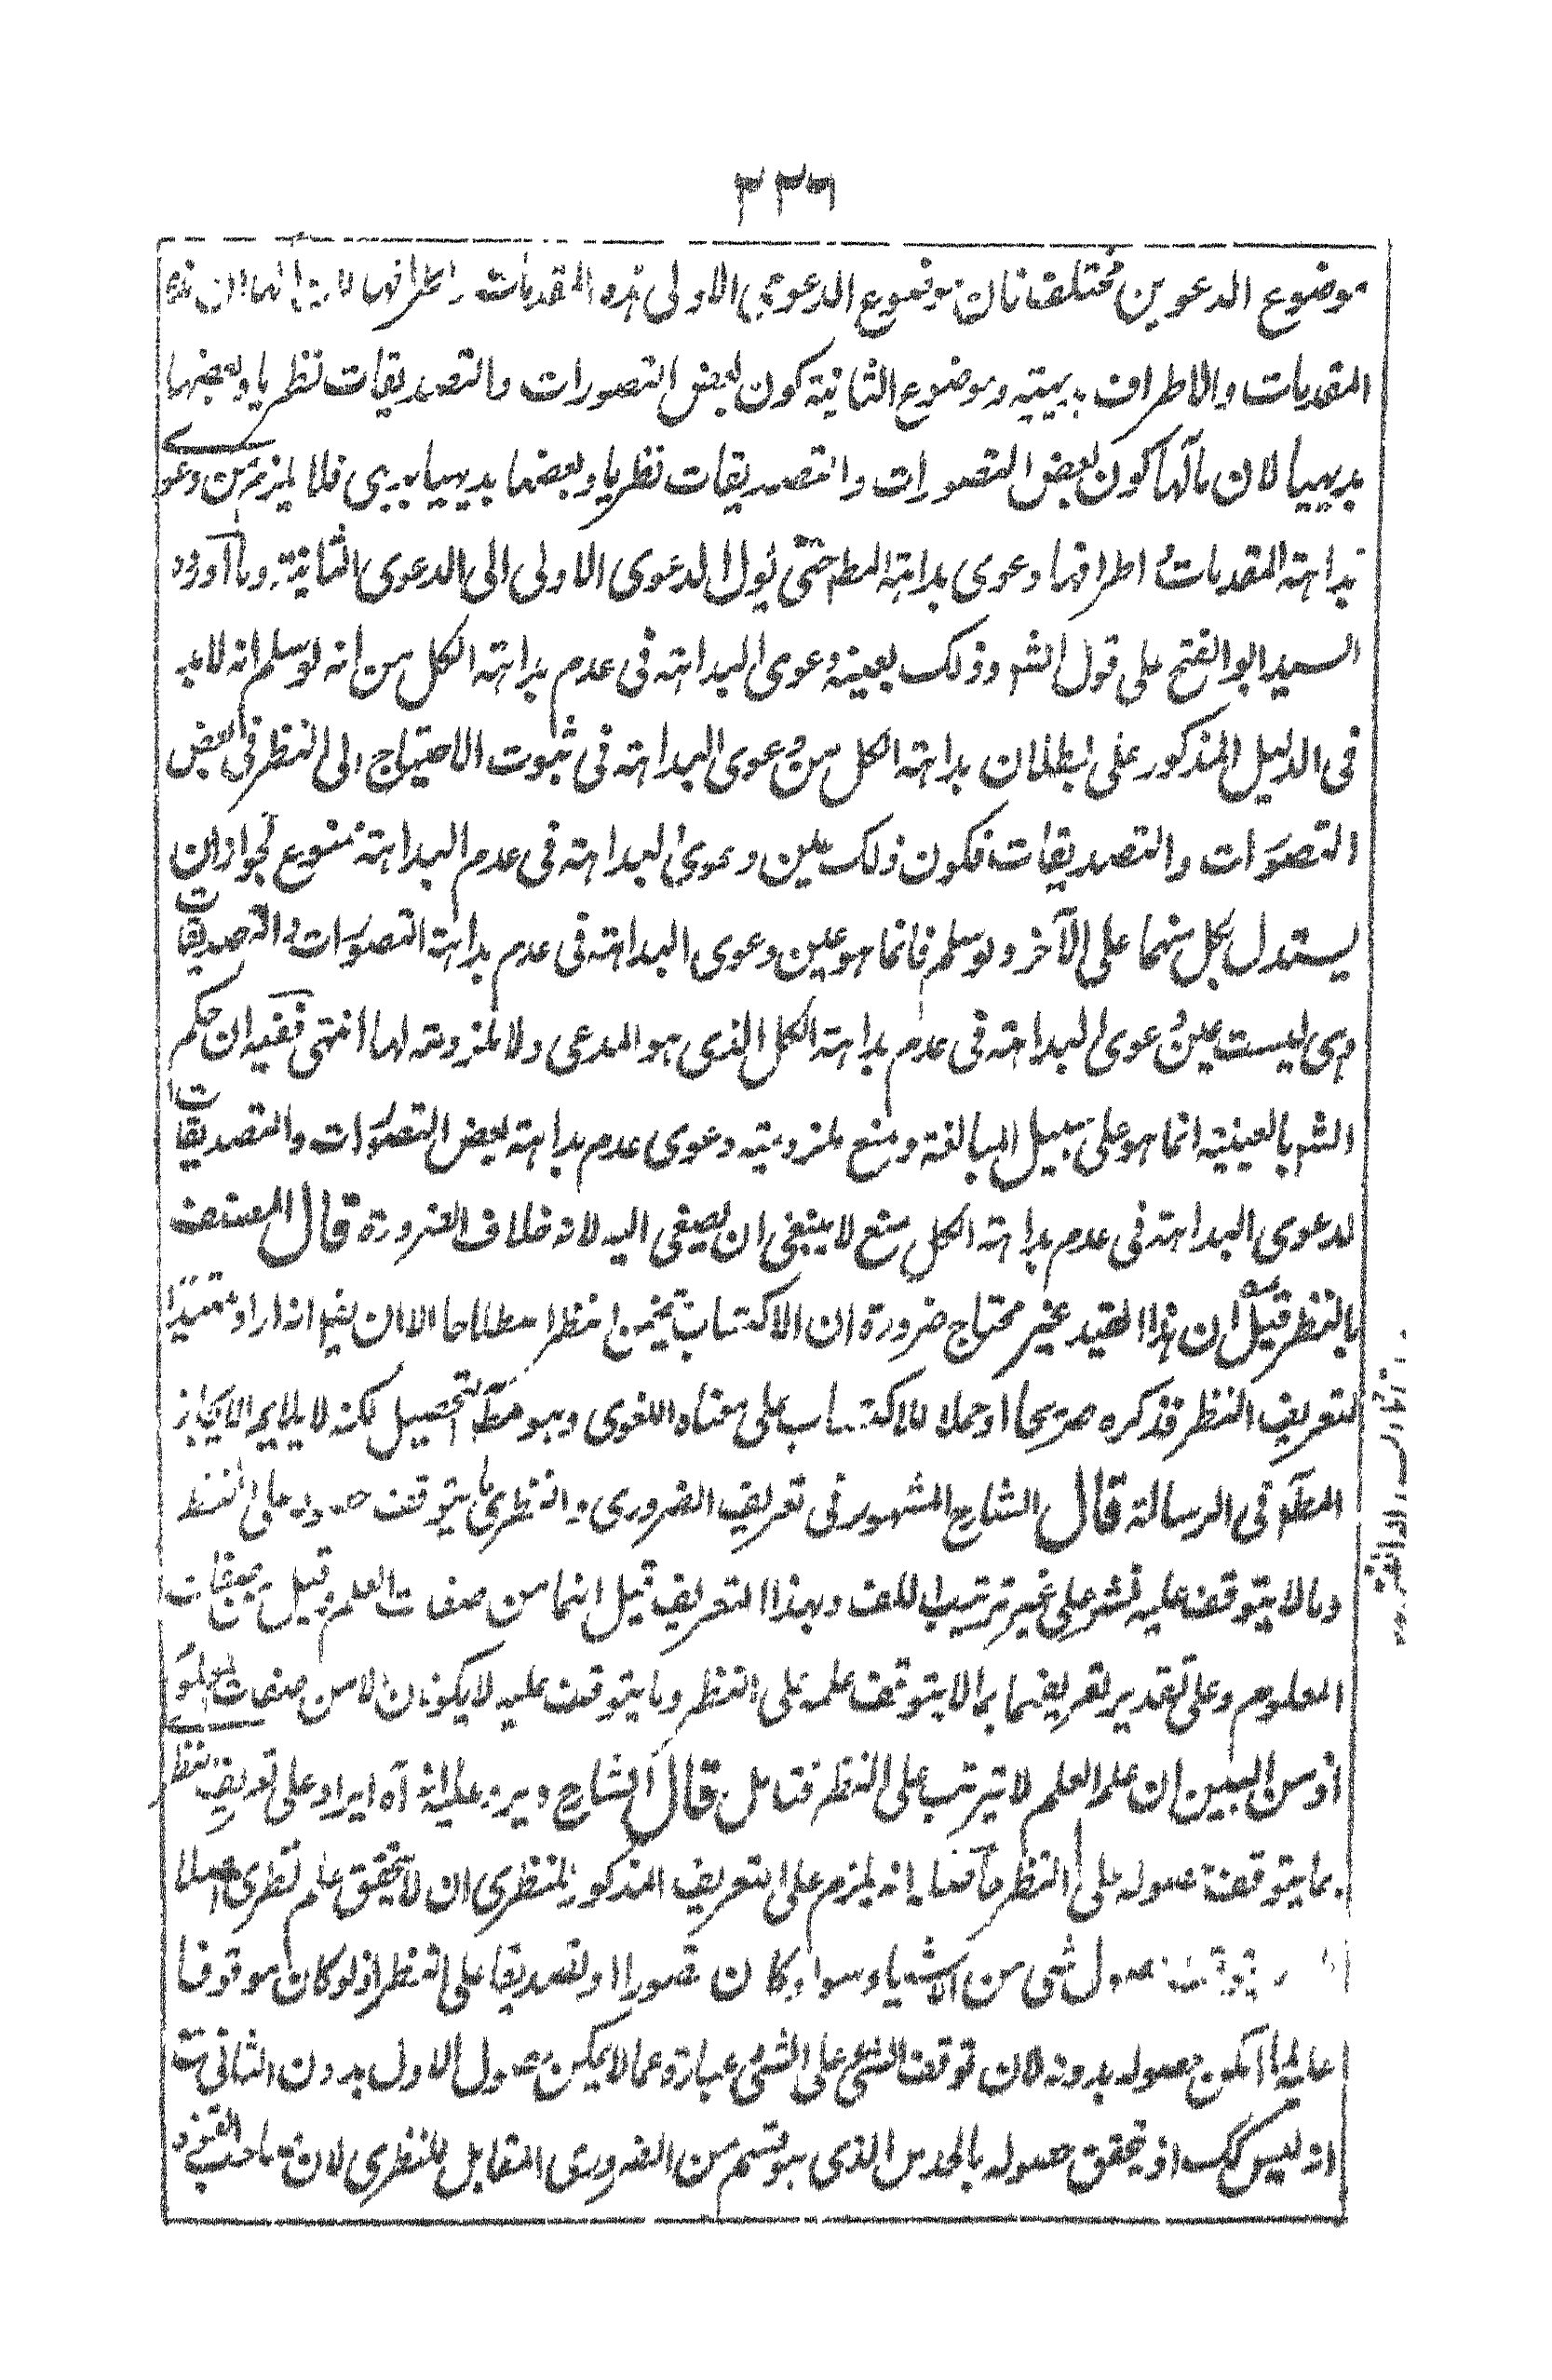 ٣٣٦
موضوع الدعويين مختلف فان موضوع الدعوى الاولى هذه المقدمات واطرافها لان مآلها ان هذه
المقدمات والاطراف بديهية وموضوع الثانية كون بعض التصورات والتصديقات نظريا وبعضها
بديهيا لان مآلها كون بعض التصورات والتصديقات نظريا وبعضها بديهيا بديهى فلا يلزم من دعوى
بداهة المقدمات و اطرافها دعوى بداهة المط حتى يؤل الدعوى الاولى الى الدعوى الثانية وما اورده
السيد ابو الفتح على قول الشم وذلك بعينه دعوى البداهة فى عدم بداهة الكل من انه لو سلم انه لا بد
فى الدليل المذكور على بطلان بداهة الكل من دعوى البداهة فى ثبوت الاحتياج الى النظر فى بعض
التصورات والتصديقات فكون ذلك عين دعوى البداهة فى عدم البداهة ممنوع لجواز ان
يستدل بكل منهما على الآخر ولو سلم فانما هو عين دعوى البداهة فى عدم بداهة التصورات والتصديقات
وهى ليست عين دعوى البداهة فى عدم بداهة الكل الذى هو المدعى ولا ملزومة لها انتهى ففيه ان حكم
الشم بالعينية انما هو على سبيل المبالغة ومنع ملزومية دعوى عدم بداهة بعض التصورات والتصديقات
لدعوى البداهة فى عدم بداهة الكل منع لا ينبغى ان يصغى اليه لانه خلاف الضرورة قال المصنف
بالنظر قيل ان هذا القيد غير محتاج ضرورة ان الاكتساب نظرا اصطلاحا الا ان يقيد اذا اراد
لتعريف النظر فذكره صريحا او حملا للاكتساب على معناه اللغوى وهو مط التحصيل لكنه لا يلايم الايجاز
المط فى الرسالة قال الشارح المشهور فى تعريف الضرورى والنظرى ما يتوقف حصوله على النظر
وما لا يتوقف عليه فنشر على غير ترتيب اللف وبهذا التعريف قيل انهما من صفات العلم وقيل من صفات
المعلوم وعلى تقدير تعريفهما بما لا يتوقف علمه على النظر وما يتوقف عليه لا يكونان الا من صفات المعلوم
اذ من البين ان علم العلم لا يترتب على النظر فتامل قال الشارح ويرد عليه انه آه ايراد على تعريف النظرى
بما يتوقف حصوله على النظر انه يلزم على التعريف المذكور للنظرى ان لا يتحقق علم نظرى اصلا
يتوقف حصول شى من الاشياء سواء كان تصورا او تصديقا على النظر اذ لو كان موقوفا
عليه لما امكن حصوله بدونه لان توقف الشى على الشى عبارة عما لا يمكن حصول الاول بدون الثانى
انه ليس كك اذ تحقق حصوله بالحدس الذى هو قسم من الضرورى المقابل للنظرى لان صاحب القوة